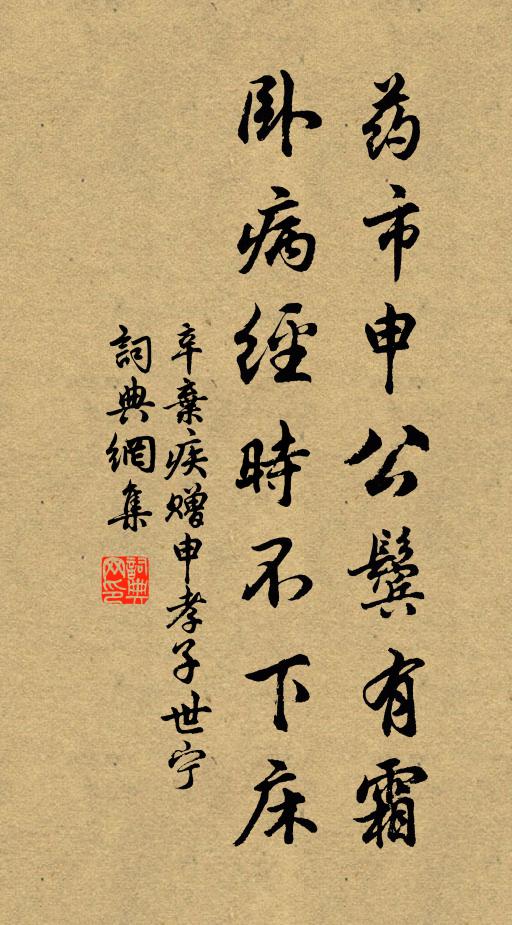 药市申公鬓有霜
卧病經時不下床
辛棄疾赠申孝子世宁
詞典網集
詞典網印